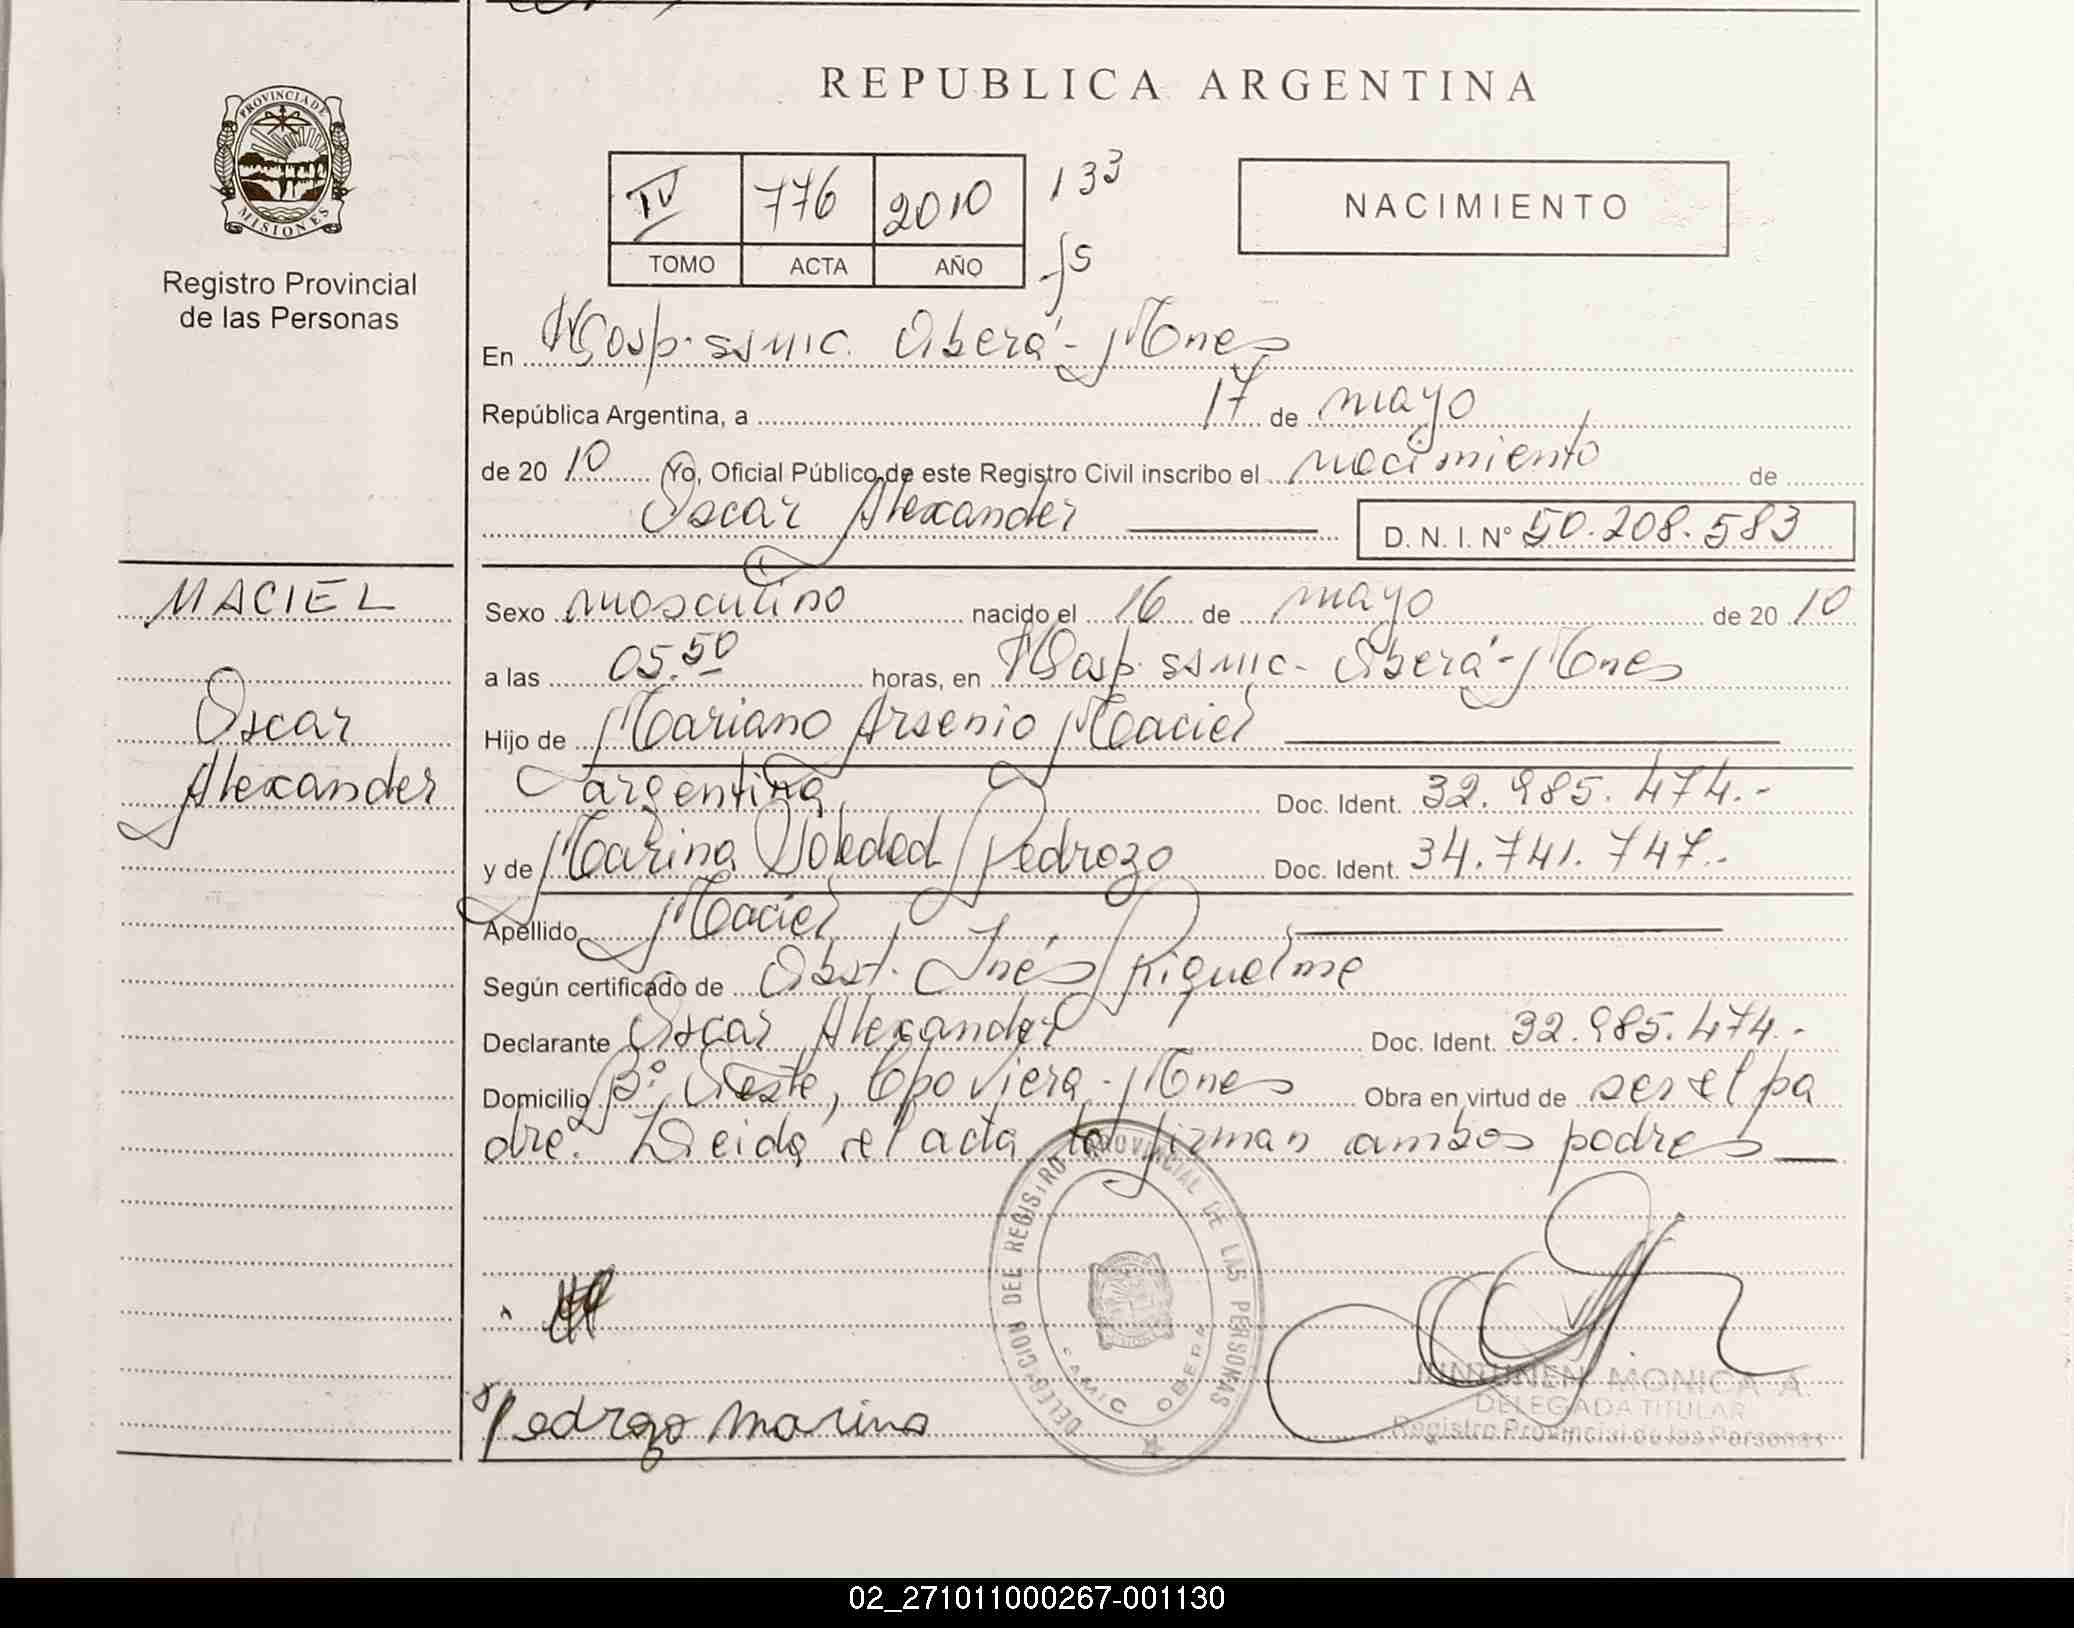 REPUBLICA ARGENTINA
PROVINCIA DE
MISIONES
Registro Provincial
de las Personas
IV 776 2010 133
TOMO ACTA AÑO fs
NACIMIENTO
En Hosp. SSMIC. Oberá - Mnes
República Argentina, a 17 de mayo
de 20 10 Yo, Oficial Público de este Registro Civil inscribo el nacimiento de
Oscar Alexander D. N. I. Nº 50.208.583
MACIEL
Oscar
Alexander
Sexo masculino nacido el 16 de mayo de 20 10
a las 05.50 horas, en Hosp. SSMIC - Oberá - Mnes
Hijo de Mariano Arsenio Maciel
argentina Doc. Ident. 32.985.474.-
y de Marina Soledad Pedrozo Doc. Ident. 34.741.747.-
Apellido Maciel
Según certificado de Obst. Inés Riquelme
Declarante Oscar Alexander Doc. Ident. 32.985.474.-
Domicilio Bº Oeste, Cpo Viera - Mnes Obra en virtud de ser el pa
dre. Leida el acta la firman ambos padres
DELEGACION DEL REGISTRO PROVINCIAL DE LAS PERSONAS
SAMIC OBERA
Pedrozo Marina
MONICA A.
DELEGADA TITULAR
Registro Provincial de las Personas
02_271011000267-001130